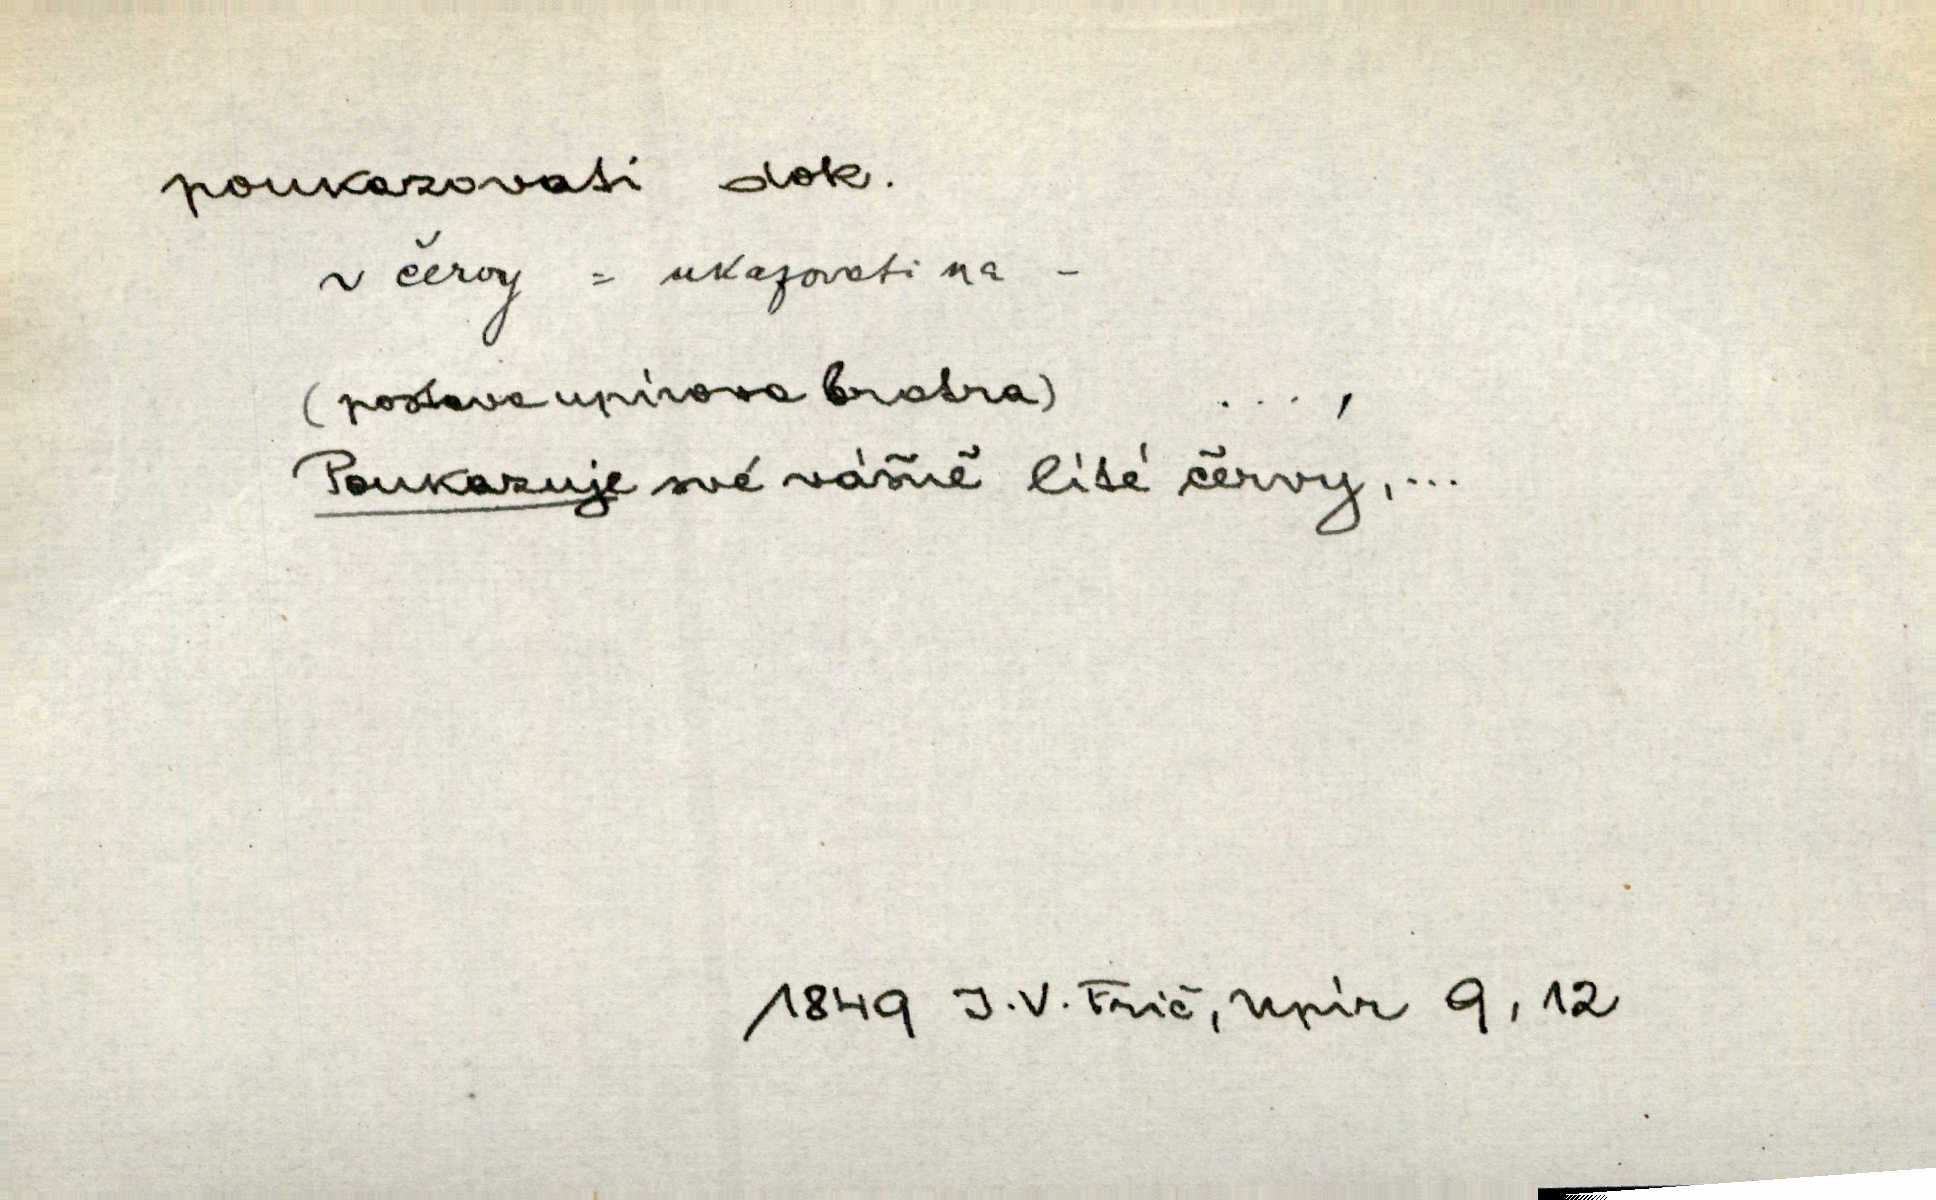 poukazovati dok.
v červy = ukazovati na -
(postava upírova bratra) ... ,
Poukazuje své vášně lité červy, ...
1849 J. V. Frič, Upír 9, 12